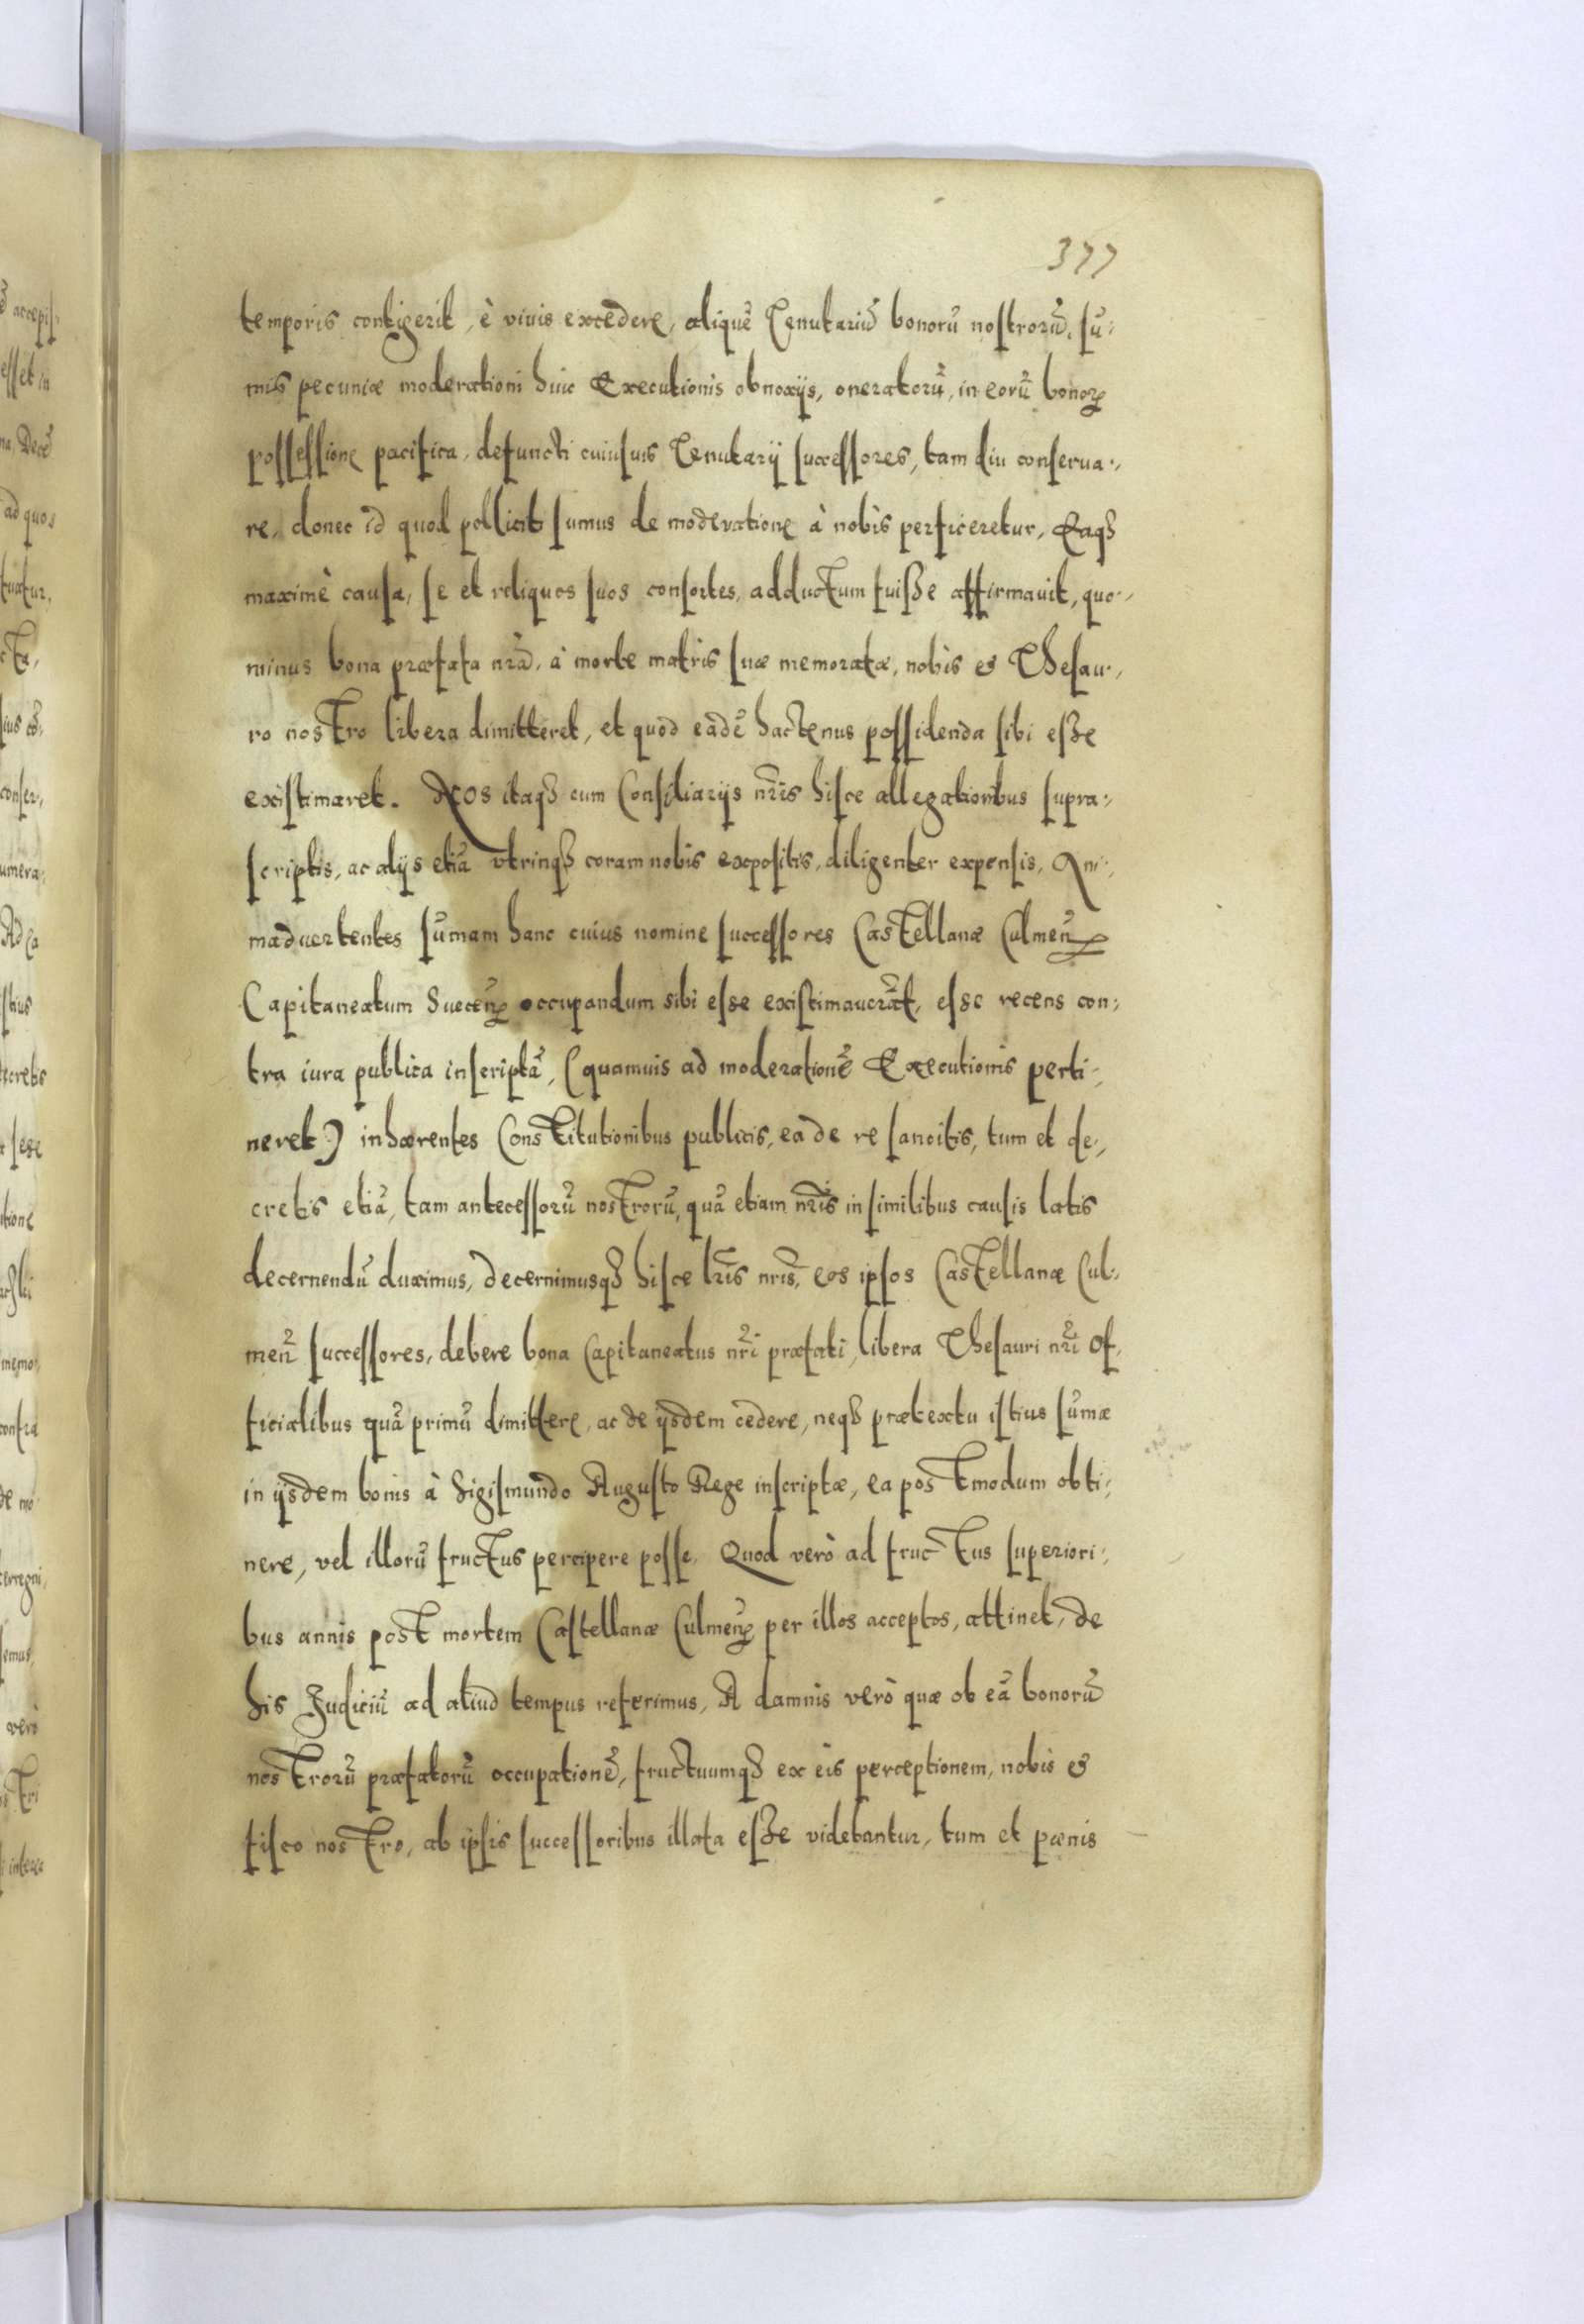 377
temporis contigerit, è viuis excedere, aliquē Tenutariū bonorū nostrorū, su⸗
mis pecuniæ moderationi huic Executionis obnoxijs, oneratorū, in eorū bonorꝝ
possessione pacifica, defuncti cuiusuis Tenutarij successores, tam diu conserua⸗
re, donec id quod polliciti sumus de moderatione à nobis perficeretur, Eaqꝫ
maximè causa, se et reliquos suos consortes, adductum fuisse affirmauit, quo⸗
minus bona præfata nr̄a, à morte matris suæ memoratæ, nobis et Thesau⸗
ro nostro libera dimitteret, et quòd eadē hactenus possidenda sibi esse
existimaret. Nos itaqꝫ cum Consiliarijs nr̄is hisce allegationibus supra⸗
scriptis, ac alijs etiā vtrinqꝫ coram nobis expositis, diligenter expensis, Ani⸗
maduertentes sūmam hanc cuius nomine successores Castellanæ Culmen̄
Capitaneatum Suecen̄ occupandum sibi esse existimauerāt, esse recens con⸗
tra iura publica inscriptā, (quamuis ad moderationē Executionis perti⸗
neret) inhærentes Constitutionibus publicis, ea de re sancitis, tum et de⸗
cretis etiā, tam antecessorū nostrorū, quā etiam nr̄is in similibus causis latis
decernendū duximus, decernimusqꝫ hisce lr̄is nr̄is, eos ipsos Castellanæ Cul⸗
men̄ successores, debere bona Capitaneatus nr̄i præfati, libera Thesauri nr̄i Of⸗
ficialibus quā primū dimittere, ac de ijsdem cedere, neqꝫ prætextu istius sūmæ
in ijsdem bonis à Sigismundo Augusto Rege inscriptæ, ea postmodum obti⸗
nere, vel illorū fructus percipere posse. Quod verò ad fructus superiori⸗
bus annis post mortem Castellanæ Culmen̄ per illos acceptos, attinet, de
his Judiciū ad aliud tempus referimus, A damnis verò quæ ob eā bonorū
nostrorū præfatorū occupationē, fructuumqꝫ ex eis perceptionem, nobis et
fisco nostro, ab ipsis successoribus illata esse videbantur, tum et pœnis